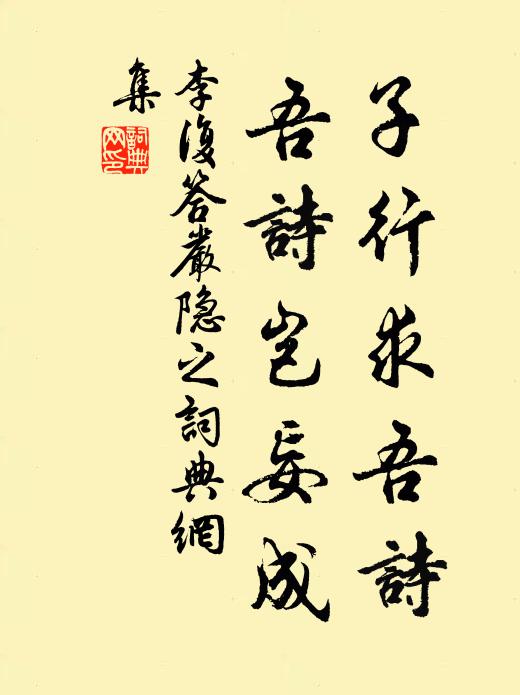 子行求吾詩
吾詩豈妄成
李復答嚴隐之詞典網
集
詞典
网印